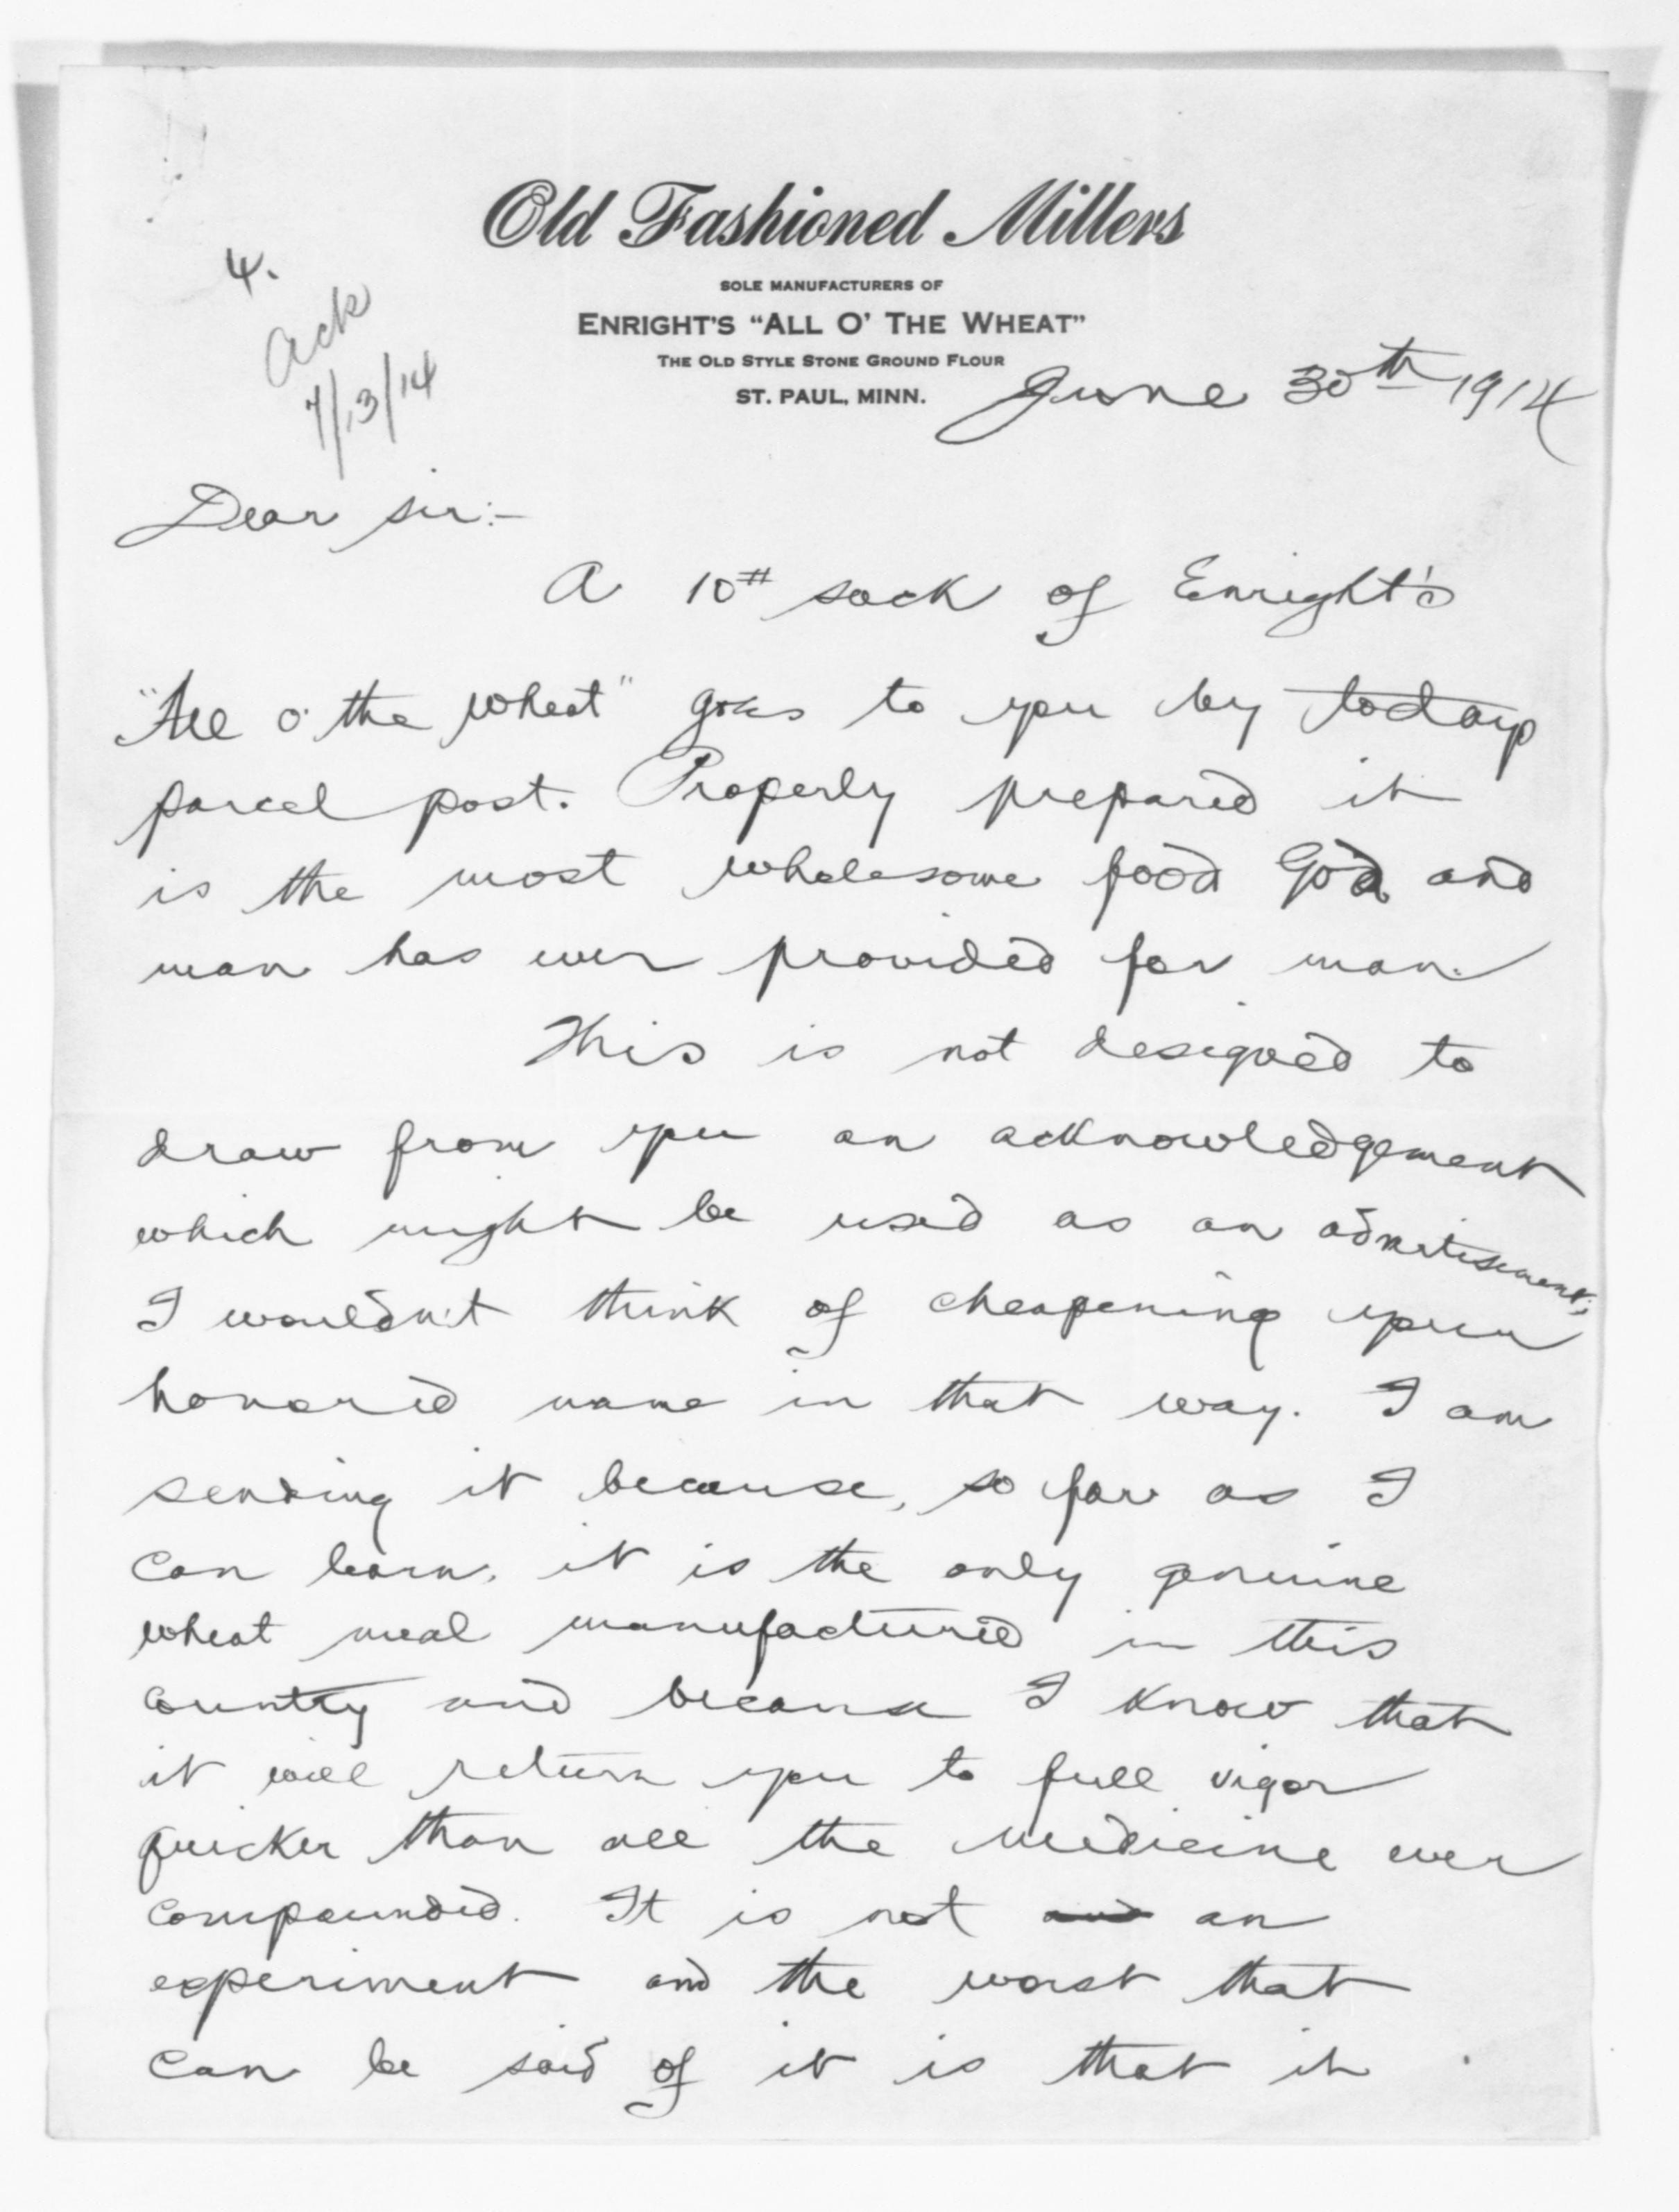 Old Fashioned Millers
SOLE MANUFACTURERS OF
ENRIGHT'S "ALL O' THE WHEAT"
THE OLD STYLE STONE GROUND FLOUR
ST. PAUL, MINN.
June 30th 1914
4.
Ack
7/13/14
Dear sir:-
A 10# sack of Enright's
"All o' the Wheat" goes to you by today
parcel post. Properly prepared it
is the most wholesome food God and
man has ever provided for man.
This is not designed to
draw from you an acknowledgement
which might be used as an advertisement;
I wouldn't think of cheapening your
honored name in that way. I am
sending it because, so far as I
can learn, it is the only genuine
wheat meal manufactured in this
country and because I know that
it will return you to full vigor
quicker than all the medicine ever
compounded. It is not and an
experiment and the worst that
can be said of it is that it